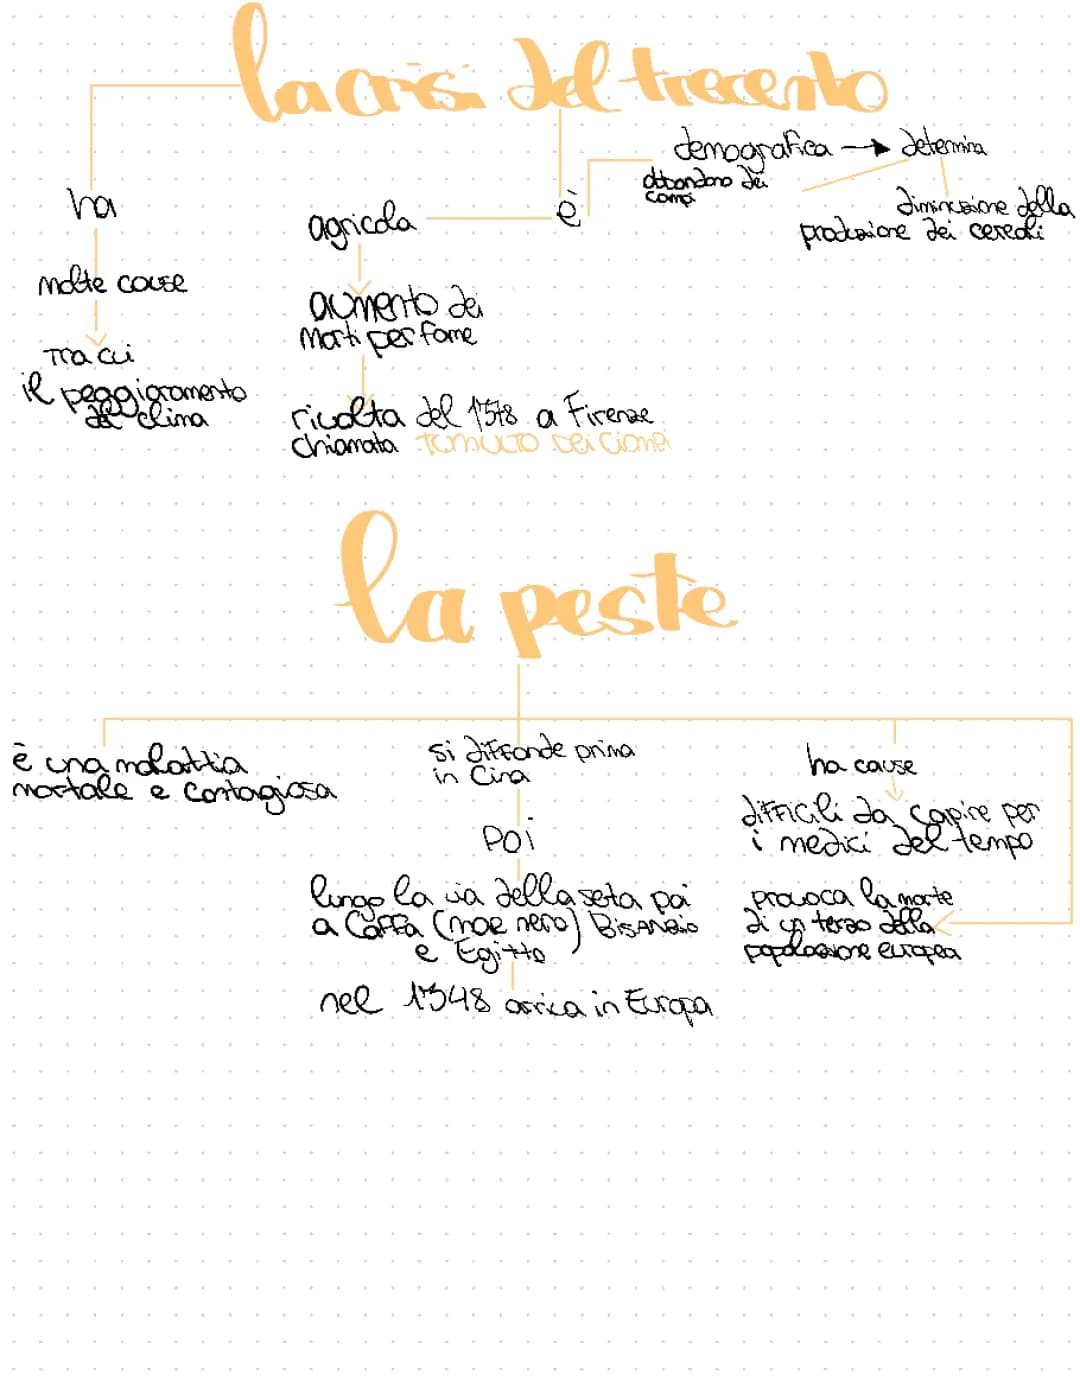 la crisi del trecento
ha
molte cause
tra cui
il peggioramento
del clima
è
agricola
aumento dei
morti per fame
rivolta del 1378 a Firenze
chiamata TUMULTO DEI Ciompi
demografica → determina
abbandono dei
campi
diminuzione della
produzione dei cereali
la peste
è una malattia
mortale e contagiosa
si diffonde prima
in Cina
poi
lungo la via della seta poi
a Caffa (mar nero) Bisanzio
e Egitto
nel 1348 arriva in Europa
ha cause
difficili da capire per
i medici del tempo
provoca la morte
di un terzo della
popolazione europea